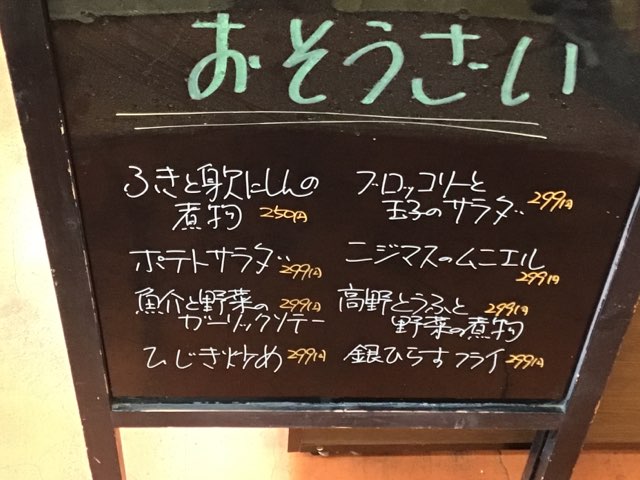 おそうざい
ふきと身欠にしんの
煮物 250円
ポテトサラダ 299円
魚介と野菜の 299円
ガーリックソテー
ひじき炒め 299円
ブロッコリーと
玉子のサラダ 299円
ニジマスのムニエル
299円
高野とうふと 299円
野菜の煮物
銀ひらすフライ 299円